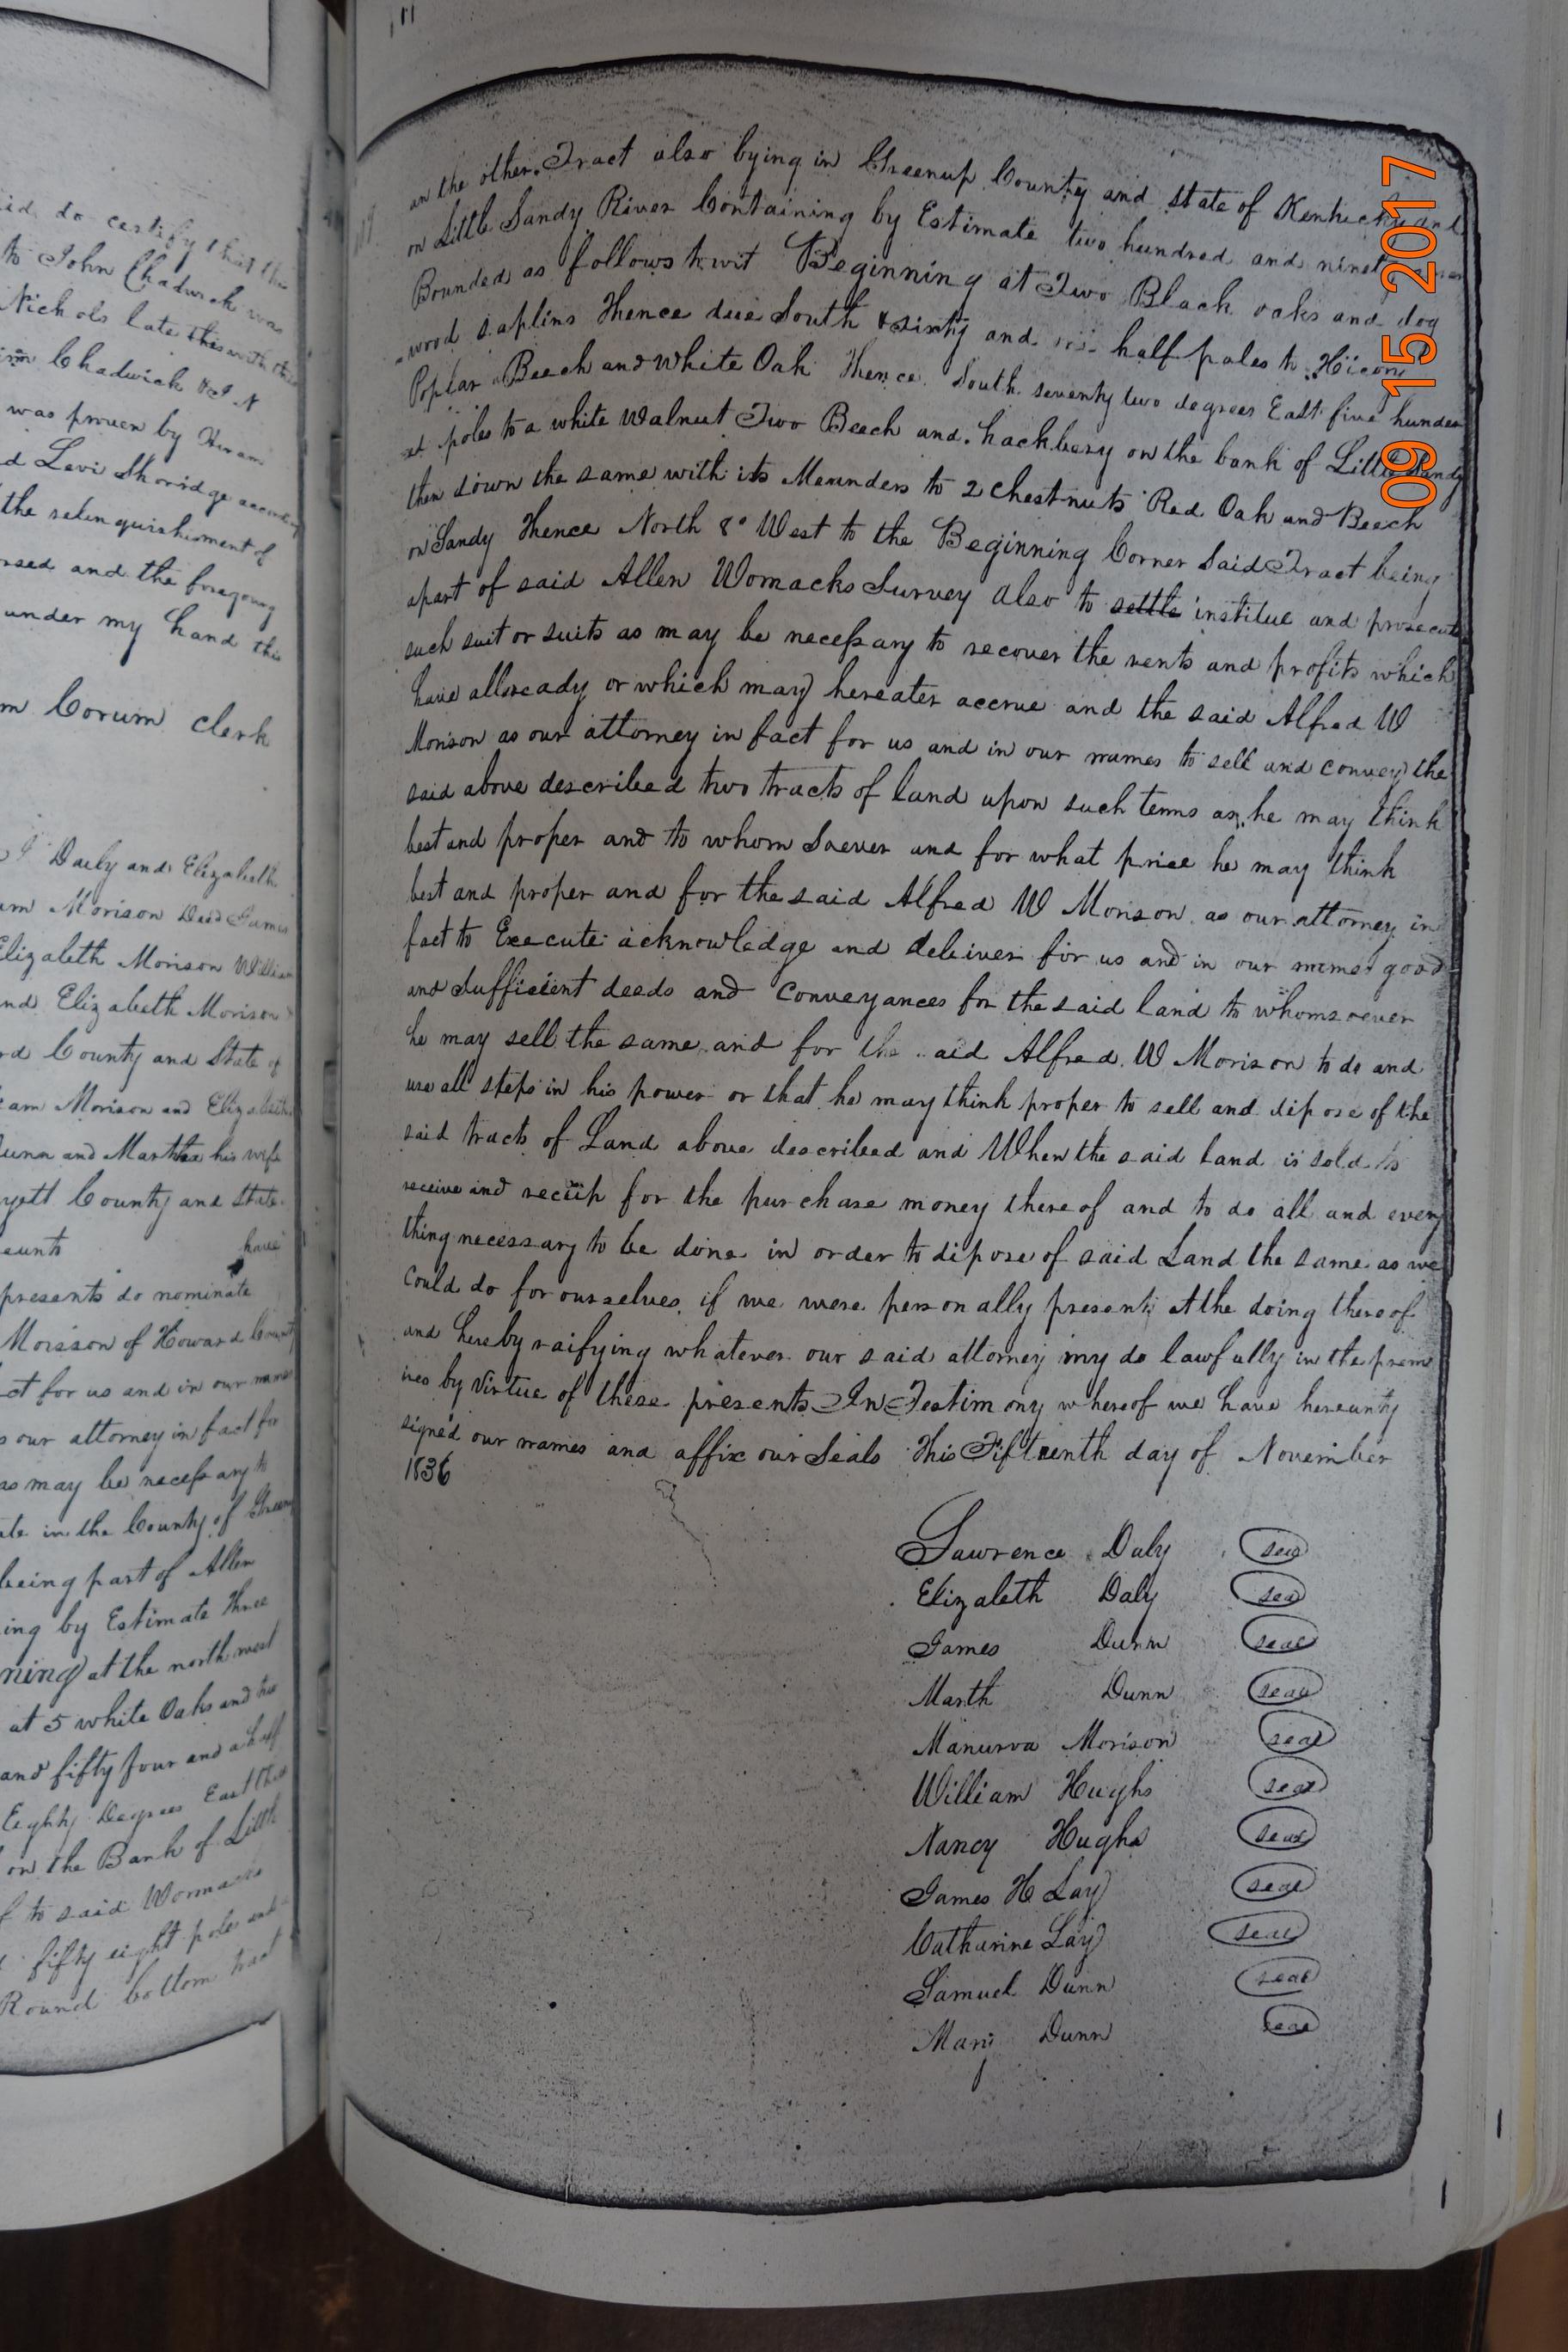 id do certify that this
to John Chadwick was
Nichols late this
Chadwick & J N
was proven by Hiram
d Levi Shoridge according
the relinquishment of
rsed and the foregoing
under my hand this
m Corum Clerk
J Daily and Elizabeth
am Morison Decd James
Elizabeth Morison William
nd Elizabeth Morison
rd County and State of
am Morison and Elizabeth
unn and Martha his wife
yett County and State
eunto have
presents do nominate
Morison of Howard County
ct for us and in our name
s our attorney in fact for
as may be necessary to
ate in the County of Green
being part of Allen
ing by Estimate three
ning at the north west
at 5 white Oaks and two
and fifty four and a half
Eighty Degrees East
on the Bank of Little
f to said Womacks
fifty eight poles and
Round bottom tract
an the other Tract also lying in Greenup County and State of Kentucky and
on Little Sandy River Containing by Estimate two hundred and ninety
Bounded as follows towit Beginning at Two Black oaks and dog
wood saplins Thence due South & sixty and half poles to Hicory
Poplar Beech and White Oak Thence South seventy two degrees East five hundr
ed poles to a white Walnut Two Beech and hackbery on the bank of Little Sandy
then down the same with its Meanders to 2 chestnuts Red Oak and Beech
on Sandy Thence North 8° West to the Beginning Corner Said Tract being
apart of said Allen Womacks Survey also to settle institue and prosecute
such suit or suits as may be necessary to recover the rents and profits which
have allready or which may hereater accrue and the said Alfred W
Morison as our attorney in fact for us and in our names to sell and convey the
said above described two tracts of land upon such terms as he may think
best and proper and to whom Soever and for what price he may think
best and proper and for the said Alfred W Morison as our attorney in
fact to Execute acknowledge and deliver for us and in our names good
and Sufficient deeds and conveyances for the said land to whomsoever
he may sell the same and for the said Alfred W Morison to do and
use all steps in his power or that he may think proper to sell and dipose of the
said tracts of Land above described and When the said land is sold to
receive and reciip for the purchase money thereof and to do all and every
thing necessary to be done in order to dipose of said Land the same as we
Could do for ourselves if we were personally present at the doing thereof
and hereby raifying whatever our said attorney my do lawfully in the prem
ises by virtue of these presents In Testimony whereof we have hereunty
signed our names and affix our Seals this Fifteenth day of November
1836
Lawrence Daly seal
Elizabeth Daly seal
James Dunn seal
Marth Dunn seal
Manurva Morison seal
William Hughs seal
Nancy Hughs seal
James H Lay seal
Catharine Lay seal
Samuel Dunn seal
Mary Dunn seal
09 15 2017